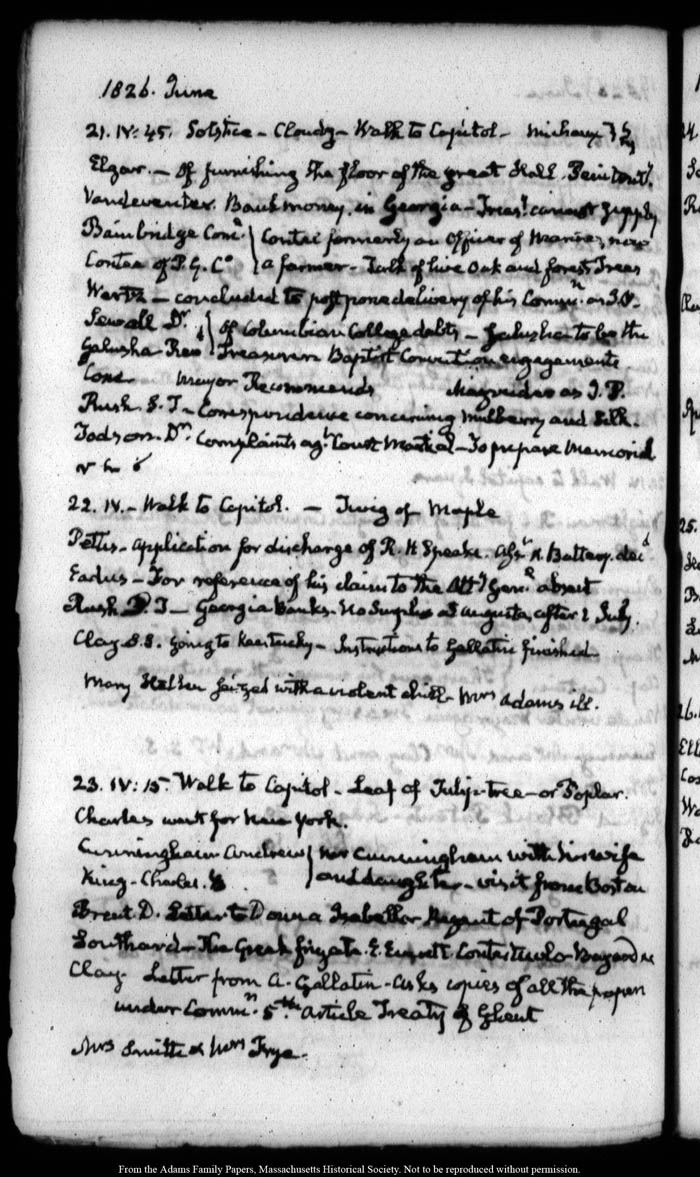 1826. June
21. IV:45. Solstice - Cloudy - Walk to Capitol - Michaux
Elgar. - Of furnishing the floor of the great Hall. Penitenty.
Vandeventer. Bank money in Georgia - Treasy. cannot supply
Bainbridge Comr. } Contee formerly an Officer of Marines, now
Contee of P. G. Co. } a farmer - Talk of live Oak and forest Trees
Wertz - concluded to postpone delivery of his Commn. as J.P.
Sewall Dr. } Of Columbian College debts - Galusha to be the
Galusha Rev } Treasurer Baptist Convention engagements
Cone Mayor Recommends as J. P.
Rush. S. T - Correspondence concerning Mulberry and Silk.
Todson. Dr. Complaints agt. Court Martial - To prepare Memorial
22. IV. - Walk to Capitol. - Twig of Maple
Pettis - application for discharge of R. H Speake. decd
Eadus - For reference of his claim to the Atty Genl. absent
Rush S. T - Georgia Banks. No Surplus at Augusta, after 1 July.
Clay S.S. going to Kentucky - Instructions to Gallatin finished.
Mary Hellen seized with a violent chill - Mrs Adams ill.
23. IV:15. Walk to Capitol - Leaf of Tulip-tree - or Poplar.
Charles went for New York.
Cunningham Andrew } Mr Cunningham with his wife
King - Charles. B } and daughter - visit from Boston
Brent D. Letter to Donna Isabella Regent of Portugal
Southard - The Greek frigate. E. Everett
Clay. Letter from A. Gallatin - asks copies of all the papers
under Commn. 5.the Article Treaty of Ghent
Mrs Smith & Mrs Frye.
From the Adams Family Papers, Massachusetts Historical Society. Not to be reproduced without permission.